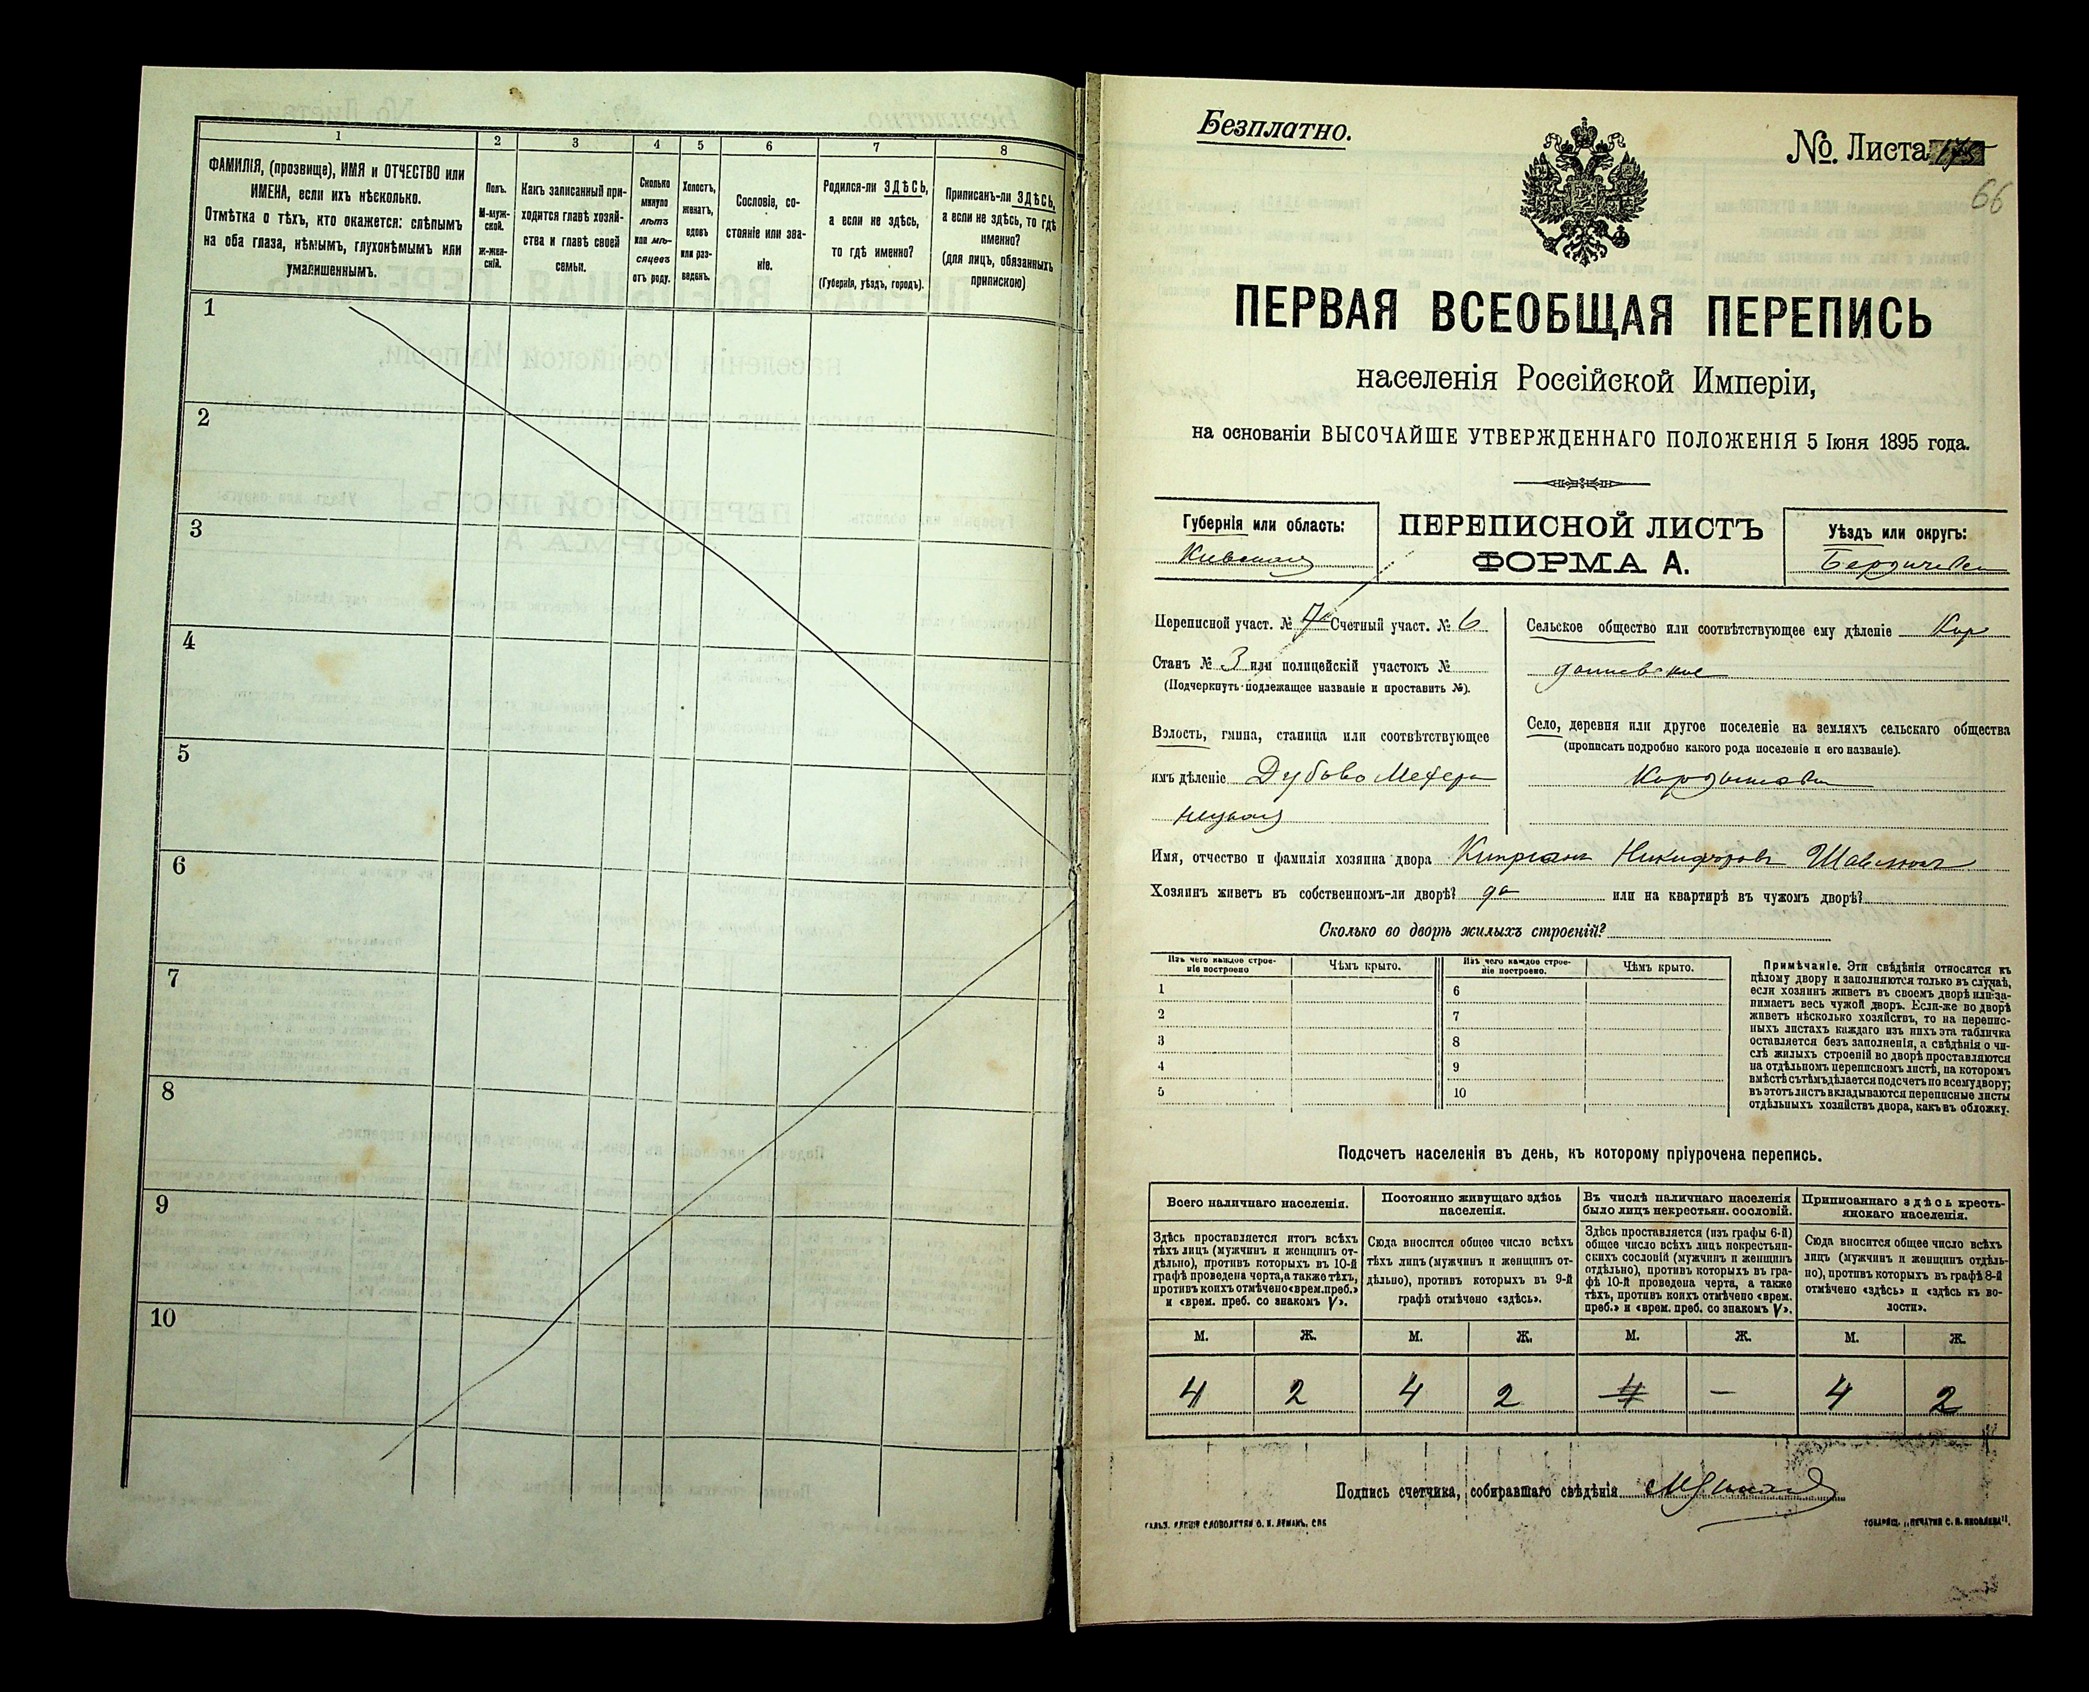 1
2
3
4
5
6
7
8
ФАМИЛІЯ, (прозвище), ИМЯ и ОТЧЕСТВО или
ИМЕНА, если ихъ нѣсколько.
Отмѣтка о тѣхъ, кто окажется: слѣпымъ
на оба глаза, нѣмымъ, глухонѣмымъ или
умалишеннымъ.
Полъ.
М-муж-
ской.
ж-жен-
скій.
Какъ записанный при-
ходится главѣ хозяй-
ства и главѣ своей
семьи.
Сколько
минуло
лѣтъ
или мѣ-
сяцевъ
отъ роду.
Холостъ,
женатъ,
вдовъ
или раз-
веденъ.
Сословіе, со-
стояніе или зва-
ніе.
Родился-ли ЗДѢСЬ,
а если не здѣсь,
то гдѣ именно?
(Губернія, уѣздъ, городъ).
Приписанъ-ли ЗДѢСЬ,
а если не здѣсь, то гдѣ
именно?
(для лицъ, обязанныхъ
припискою)
1
2
3
4
5
6
7
8
9
10
Безплатно.
№. Листа 175
66
ПЕРВАЯ ВСЕОБЩАЯ ПЕРЕПИСЬ
населенія Россійской Имперіи,
на основаніи ВЫСОЧАЙШЕ УТВЕРЖДЕННАГО ПОЛОЖЕНІЯ 5 Іюня 1895 года.
Губернія или область:
Кіевская
ПЕРЕПИСНОЙ ЛИСТЪ
ФОРМА А.
Уѣздъ или округъ:
Бердичевск
Переписной участ. № 7 Счетный участ. № 6
Станъ № 3 или полицейскій участокъ №
(Подчеркнуть подлежащее названіе и проставить №).
Волость, гмина, станица или соотвѣтствующее
имъ дѣленіе Дубово Мехере
нецкая
Сельское общество или соотвѣтствующее ему дѣленіе Кор
дышевское
Село, деревня или другое поселеніе на земляхъ сельскаго общества
(прописать подробно какого рода поселеніе и его названіе).
Кордышевка
Имя, отчество и фамилія хозяина двора Кипріанъ Никифоровъ Шавлюкъ
Хозяинъ живетъ въ собственномъ-ли дворѣ? да или на квартирѣ въ чужомъ дворѣ?
Сколько во дворѣ жилыхъ строеній?
Изъ чего каждое строе-
ніе построено
Чѣмъ крыто.
Изъ чего каждое строе-
ніе построено.
Чѣмъ крыто.
1
2
3
4
5
6
7
8
9
10
Примѣчаніе. Эти свѣдѣнія относятся къ
цѣлому двору и заполняются только въ случаѣ,
если хозяинъ живетъ въ своемъ дворѣ или за-
нимаетъ весь чужой дворъ. Если-же во дворѣ
живетъ нѣсколько хозяйствъ, то на перепис-
ныхъ листахъ каждаго изъ нихъ эта табличка
оставляется безъ заполненія, а свѣдѣнія о чи-
слѣ жилыхъ строеній во дворѣ проставляются
на отдѣльномъ переписномъ листѣ, на которомъ
вмѣстѣ съ тѣмъ дѣлается подсчетъ по всему двору;
въ этотъ листъ вкладываются переписные листы
отдѣльныхъ хозяйствъ двора, какъ въ обложку.
Подсчетъ населенія въ день, къ которому пріурочена перепись.
Всего наличнаго населенія.
Постоянно живущаго здѣсь
населенія.
Въ числѣ наличнаго населенія
было лицъ некрестьян. сословій.
Приписаннаго здѣсь кресть-
янскаго населенія.
Здѣсь проставляется итогъ всѣхъ
тѣхъ лицъ (мужчинъ и женщинъ от-
дѣльно), противъ которыхъ въ 10-й
графѣ проведена черта, а также тѣхъ,
противъ коихъ отмѣчено «врем. преб.»
и «врем. преб. со знакомъ V».
Сюда вносится общее число всѣхъ
тѣхъ лицъ (мужчинъ и женщинъ от-
дѣльно), противъ которыхъ въ 9-й
графѣ отмѣчено «здѣсь».
Здѣсь проставляется (изъ графы 6-й)
общее число всѣхъ лицъ некрестьян-
скихъ сословій (мужчинъ и женщинъ
отдѣльно), противъ которыхъ въ гра-
фѣ 10-й проведена черта, а также
тѣхъ, противъ коихъ отмѣчено «врем.
преб.» и «врем. преб. со знакомъ V».
Сюда вносится общее число всѣхъ
лицъ (мужчинъ и женщинъ отдѣль-
но), противъ которыхъ въ графѣ 8-й
отмѣчено «здѣсь» и «здѣсь къ во-
лости».
М. Ж. М. Ж. М. Ж. М. Ж.
4 2 4 2 4 — 4 2
Подпись счетчика, собиравшаго свѣдѣнія
ГАЛЬВ. КЛИШЕ СЛОВОЛИТНИ О. И. ЛЕМАНЪ, СПБ
ТОВАРИЩ. „ПЕЧАТНЯ С. П. ЯКОВЛЕВА".